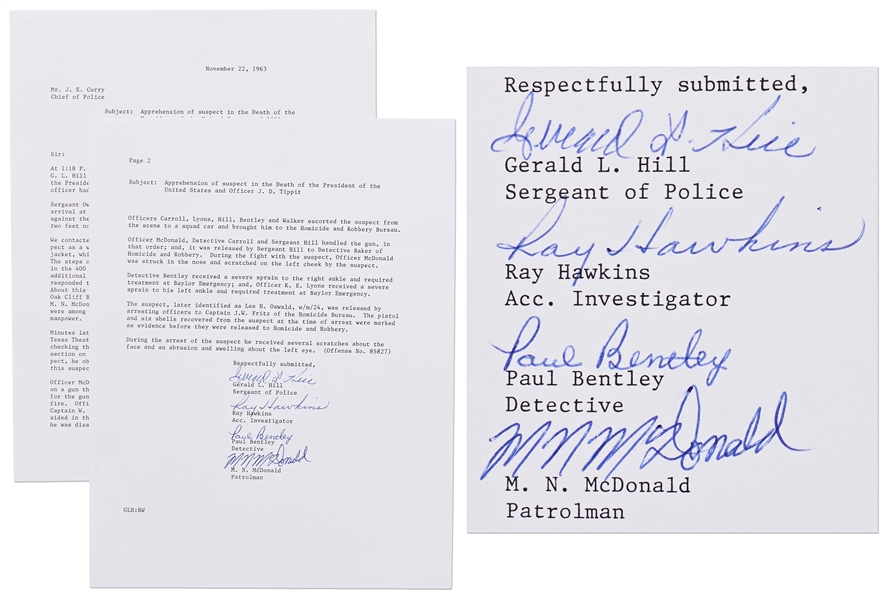 November 22, 1963
Mr. J. E. Curry
Chief of Police
Subject: Apprehension of suspect in the Death of the
Sir:
At 1:18 P.
G. L. Hill
the Preside
officer had
Sergeant Ow
arrival at
against the
two feet no
We contacte
pect as a w
jacket, whi
The steps o
in the 400
additional
responded t
About this
Oak Cliff B
M. N. McDon
were among
manpower.
Minutes lat
Texas Theat
checking th
section on
pect, he ob
this suspec
Officer McD
on a gun th
for the gun
fire. Offi
Captain W.
aided in th
he was disa
Page 2
Subject: Apprehension of suspect in the Death of the President of the
United States and Officer J. D. Tippit
Officers Carroll, Lyons, Hill, Bentley and Walker escorted the suspect from
the scene to a squad car and brought him to the Homicide and Robbery Bureau.
Officer McDonald, Detective Carroll and Sergeant Hill handled the gun, in
that order; and, it was released by Sergeant Hill to Detective Baker of
Homicide and Robbery. During the fight with the suspect, Officer McDonald
was struck in the nose and scratched on the left cheek by the suspect.
Detective Bentley received a severe sprain to the right ankle and required
treatment at Baylor Emergency; and, Officer K. E. Lyons received a severe
sprain to his left ankle and required treatment at Baylor Emergency.
The suspect, later identified as Lee H. Oswald, w/m/24, was released by
arresting officers to Captain J.W. Fritz of the Homicide Bureau. The pistol
and six shells recovered from the suspect at the time of arrest were marked
as evidence before they were released to Homicide and Robbery.
During the arrest of the suspect he received several scratches about the
face and an abrasion and swelling about the left eye. (Offense No. 85827)
Respectfully submitted,
Gerard L. Hill
Gerald L. Hill
Sergeant of Police
Ray Hawkins
Ray Hawkins
Acc. Investigator
Paul Bentley
Paul Bentley
Detective
M N McDonald
M. N. McDonald
Patrolman
GLH:RW
Respectfully submitted,
Gerard L. Hill
Gerald L. Hill
Sergeant of Police
Ray Hawkins
Ray Hawkins
Acc. Investigator
Paul Bentley
Paul Bentley
Detective
M N McDonald
M. N. McDonald
Patrolman